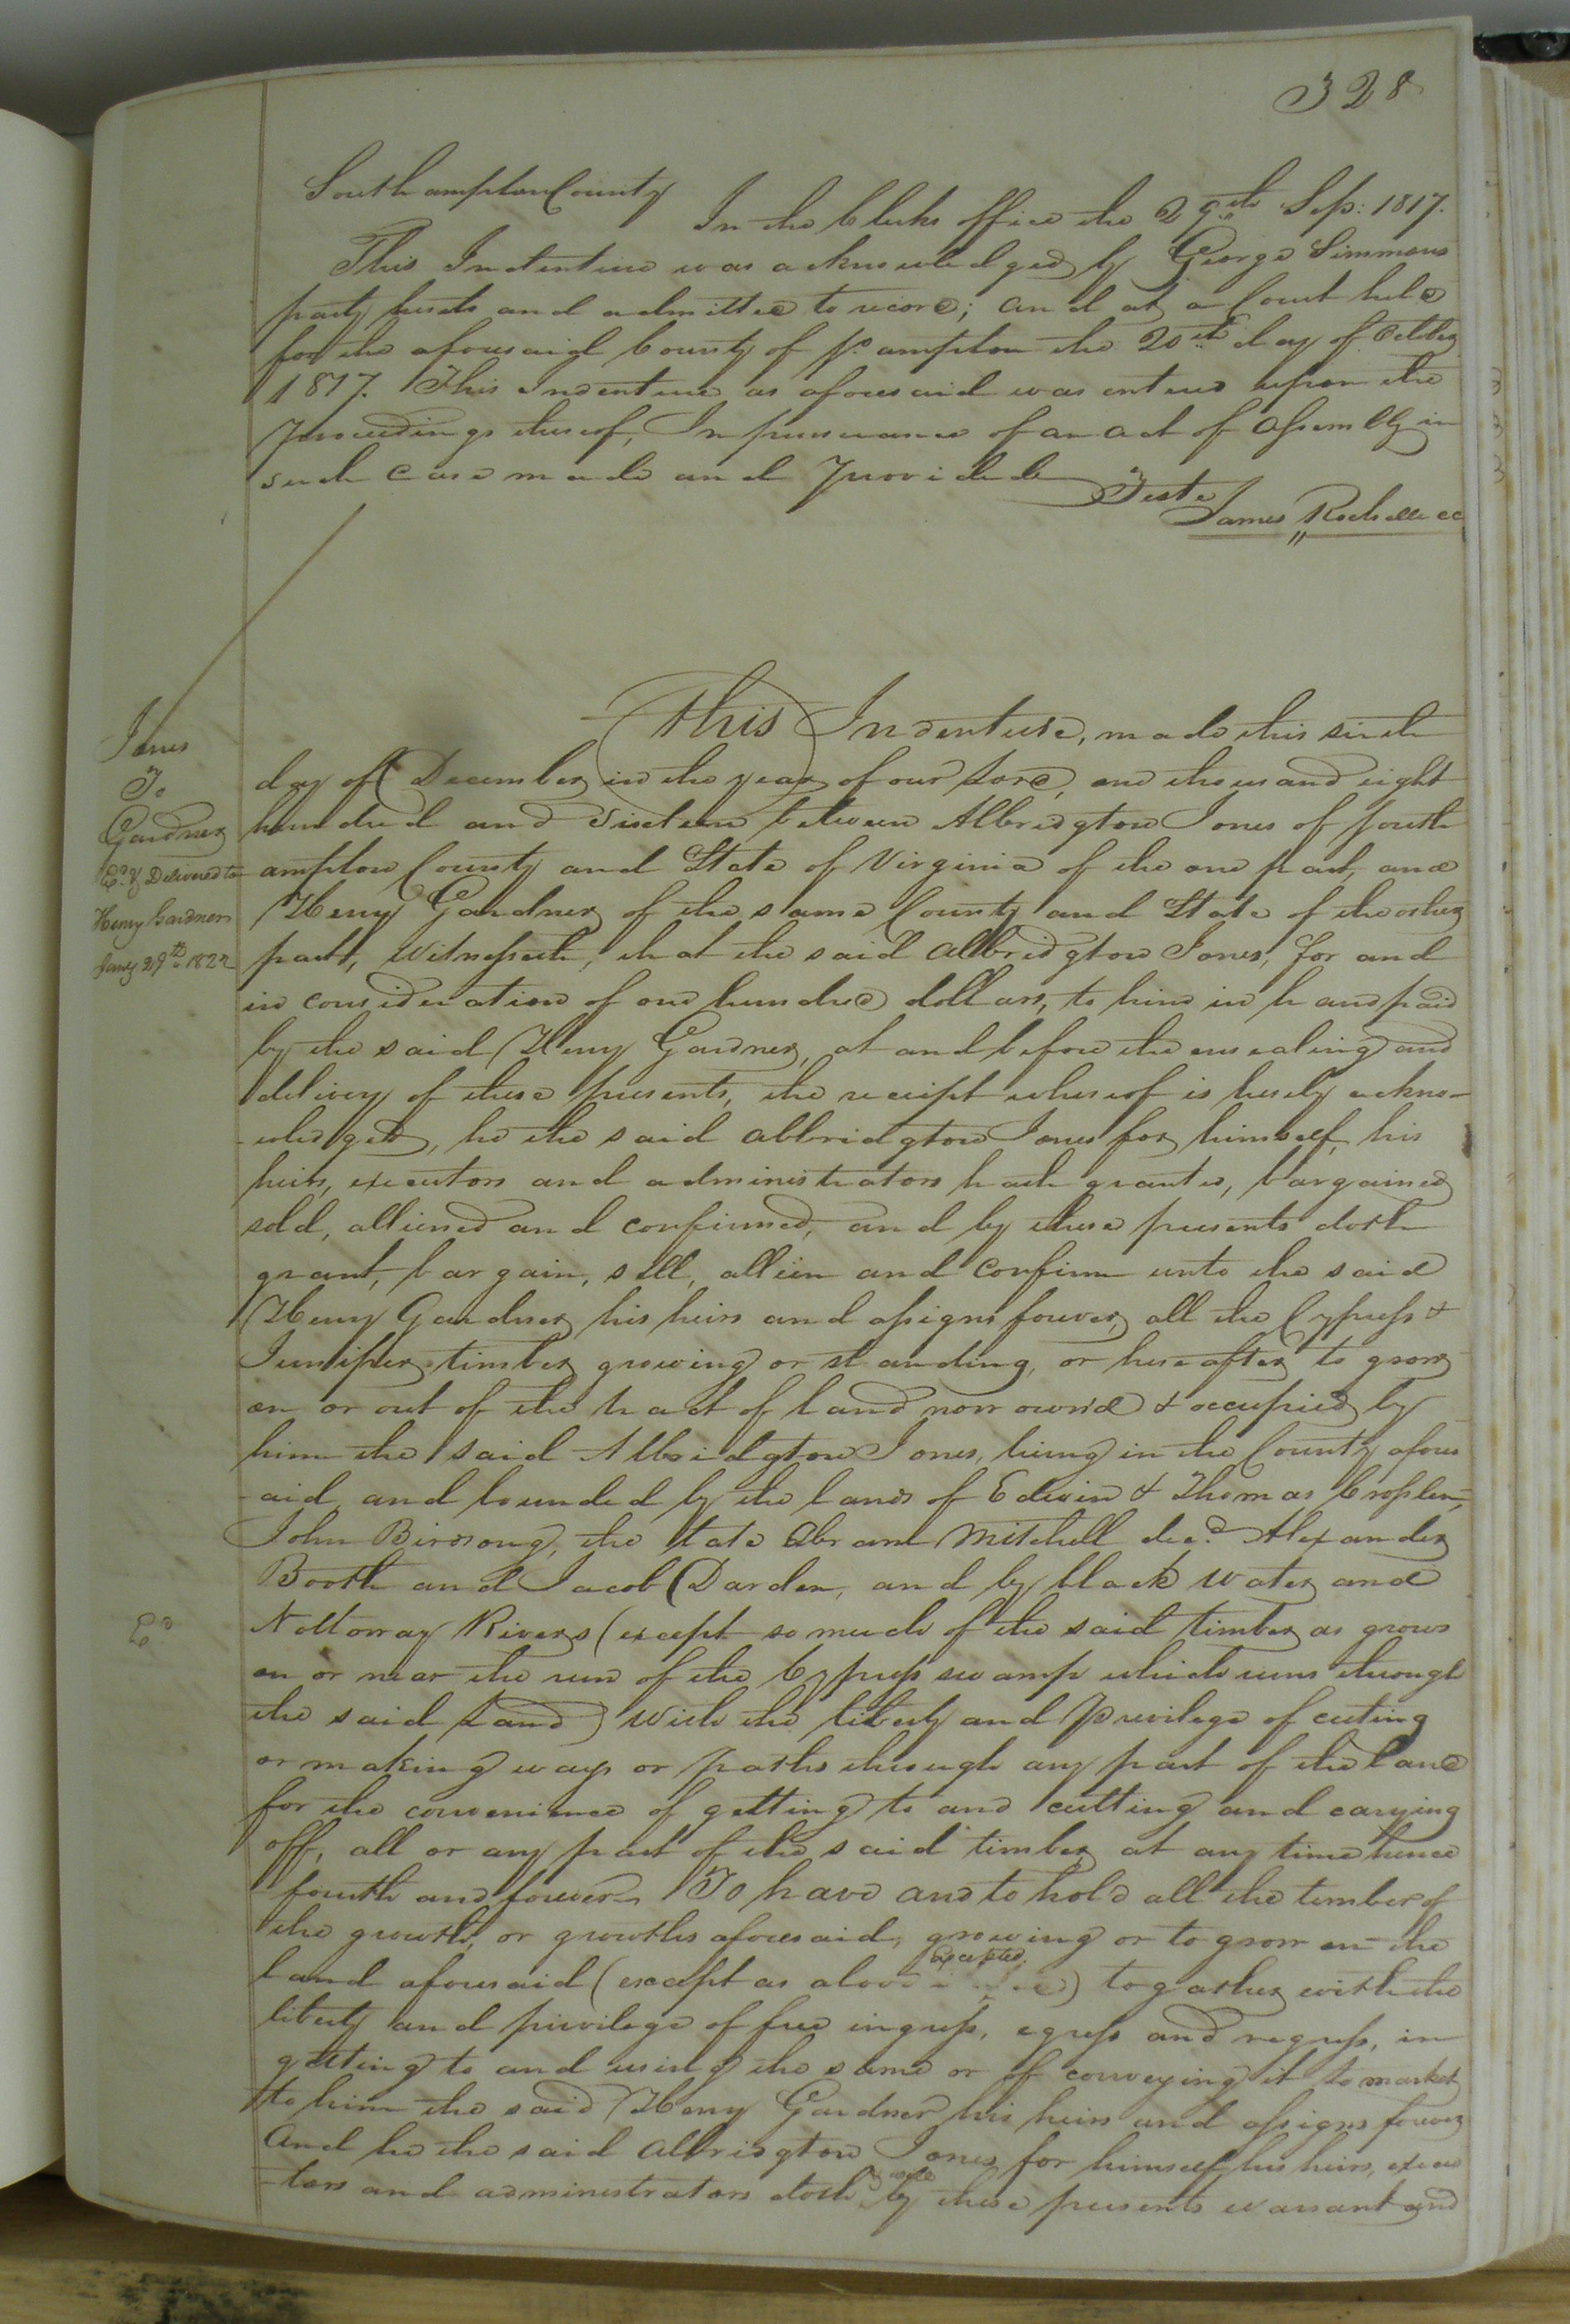 328
Southampton County
In the Clerks office the 29th Sep: 1817.
This Indenture was acknowledged by George Simmons
party hereto and admitted to record; and at a Court held
for the aforesaid County of So ampton the 20th day of Octber
1817. This Indenture as aforesaid was entered upon the
proceedings thereof, In pursuance of an act of Assembly in
such case made and provided
Teste
James Rochelle cc
Jones
To
Gardner
Ed. & Delivered to
Henry Gardner
Jany 29th 1822
This Indenture, made this sixth
day of December in the year of our Lord, one thousand eight
hundred and sixteen between Albridgton Jones of South
ampton County and State of Virginia of the one part, and
Henry Gardner of the same County and State of the other
part, Witnesseth, that the said Albridgton Jones, for and
in consideration of one hundred dollars, to him in hand paid
by the said Henry Gardner, at and before the ensealing and
delivery of these presents, the receipt whereof is hereby ackno-
-wledged, he the said Albridgton Jones for himself, his
heirs, executors and administrators hath granted, bargained
sold, alliened and confirmed, and by these presents doth
grant, bargain, sell, allien and confirm unto the said
Henry Gardner his heirs and assigns forever, all the Cypress &
Juniper timber growing or standing, or hereafter to grow
on or out of the tract of land now own'd & occupied by
him the said Albridgton Jones, lieing in the County afores
-aid and bounded by the lands of Edwin & Thomas Crosslen,
John Birdsong, the late Abram Mitchell decd. Alexander
Booth and Jacob Darden, and by black water and
Ed.
Nottoway Rivers (except so much of the said timber as grows
on or near the run of the Cypress swamp which runs through
the said Land) with the liberty and privilege of cuting
or making ways or paths through any part of the land
for the convenience of getting to and cutting and carrying
off, all or any part of the said timber at any time hence
fourth and forever. To have and to hold all the timber of
the growth, or growths aforesaid, growing or to grow on the
excepted
land aforesaid (except as above) togather with the
liberty and privilege of free ingress, egress and regress, in
getting to and using the same or of conveying it to market
to him the said Henry Gardner his heirs and assigns forever
And he the said Albridgton Jones for himself his heirs, execu
-tors and administrators doth by these presents warrant and